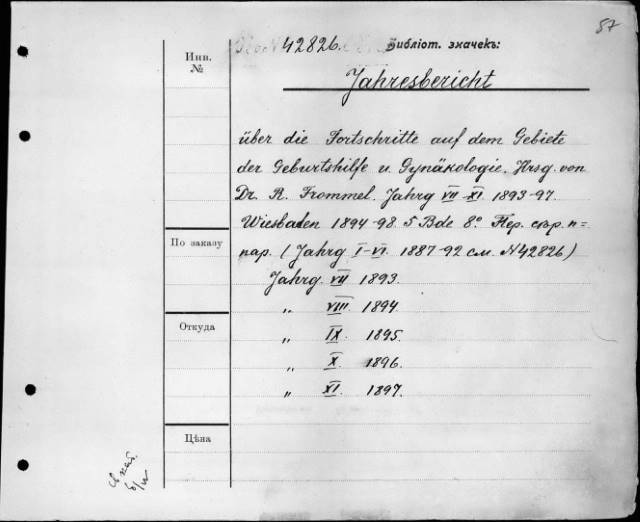 57
42826. Библіот. значекъ:
Инв.
№
Jahresbericht
über die Fortschritte auf dem Gebiete
der Geburtshilfe u. Gynäkologie. Hrsg. von
Dr. R. Frommel. Jahrg VII-XI. 1893-97.
Wiesbaden 1894-98. 5 Bde 8º. Пер. скр. п=
пар. (Jahrg. I-VI. 1887-92 см. N42826)
По заказу
Jahrg. VII 1893.
„ VIII. 1894.
Откуда
„ IX. 1895.
„ X. 1896.
„ XI. 1897.
Цѣна